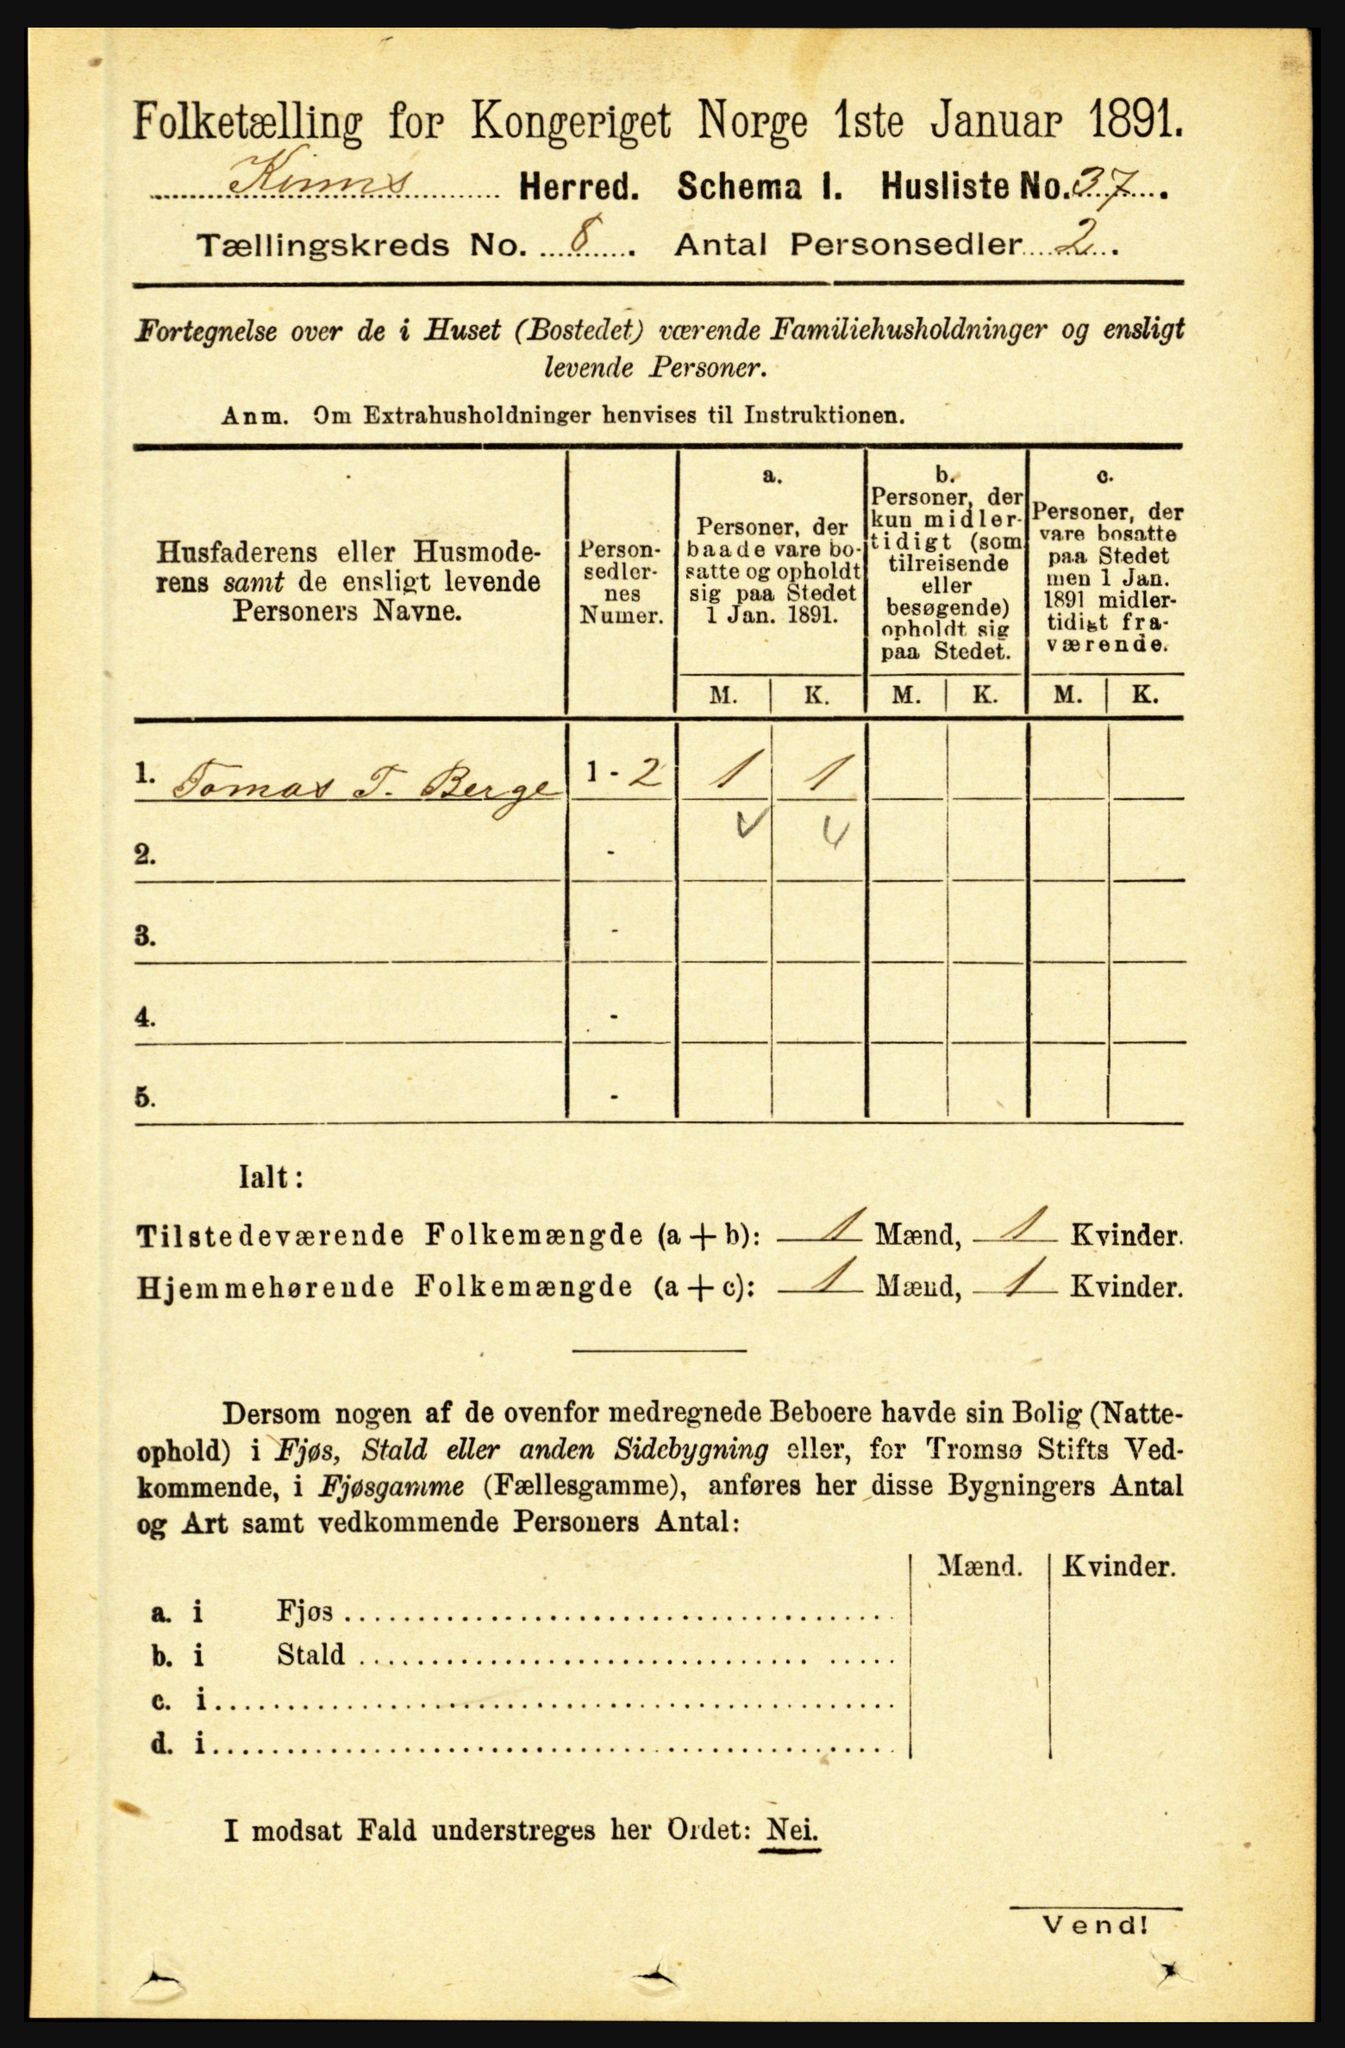 Folketælling for Kongeriget Norge 1ste Januar 1891.
Kinns Herred. Schema 1. Husliste No. 37.
Tællingskreds No. 8. Antal Personsedler 2.
Fortegnelse over de i Huset (Bostedet) værende Familiehusholdninger og ensligt
levende Personer.
Anm. Om Extrahusholdninger henvises til Instruktionen.
Husfaderens eller Husmode-
rens samt de ensligt levende
Personers Navne.
Person-
sedler-
nes
Numer.
a.
Personer, der
baade vare bo-
satte og opholdt
sig paa Stedet
1 Jan. 1891.
b.
Personer, der
kun midler-
tidigt (som
tilreisende
eller
besøgende)
opholdt sig
paa Stedet.
c.
Personer, der
vare bosatte
paa Stedet
men 1 Jan.
1891 midler-
tidigt fra-
værende.
M. K. M. K. M. K.
1. Tomas T. Berge 1 - 2 1 1
2. -
3. -
4. -
5. -
Ialt:
Tilstedeværende Folkemængde (a + b): 1 Mænd, 1 Kvinder.
Hjemmehørende Folkemængde (a + c): 1 Mænd, 1 Kvinder.
Dersom nogen af de ovenfor medregnede Beboere havde sin Bolig (Natte-
ophold) i Fjøs, Stald eller anden Sidebygning eller, for Tromsø Stifts Ved-
kommende, i Fjøsgamme (Fællesgamme), anføres her disse Bygningers Antal
og Art samt vedkommende Personers Antal:
Mænd. Kvinder.
a. i Fjøs
b. i Stald
c. i
d. i
I modsat Fald understreges her Ordet: Nei.
Vend!